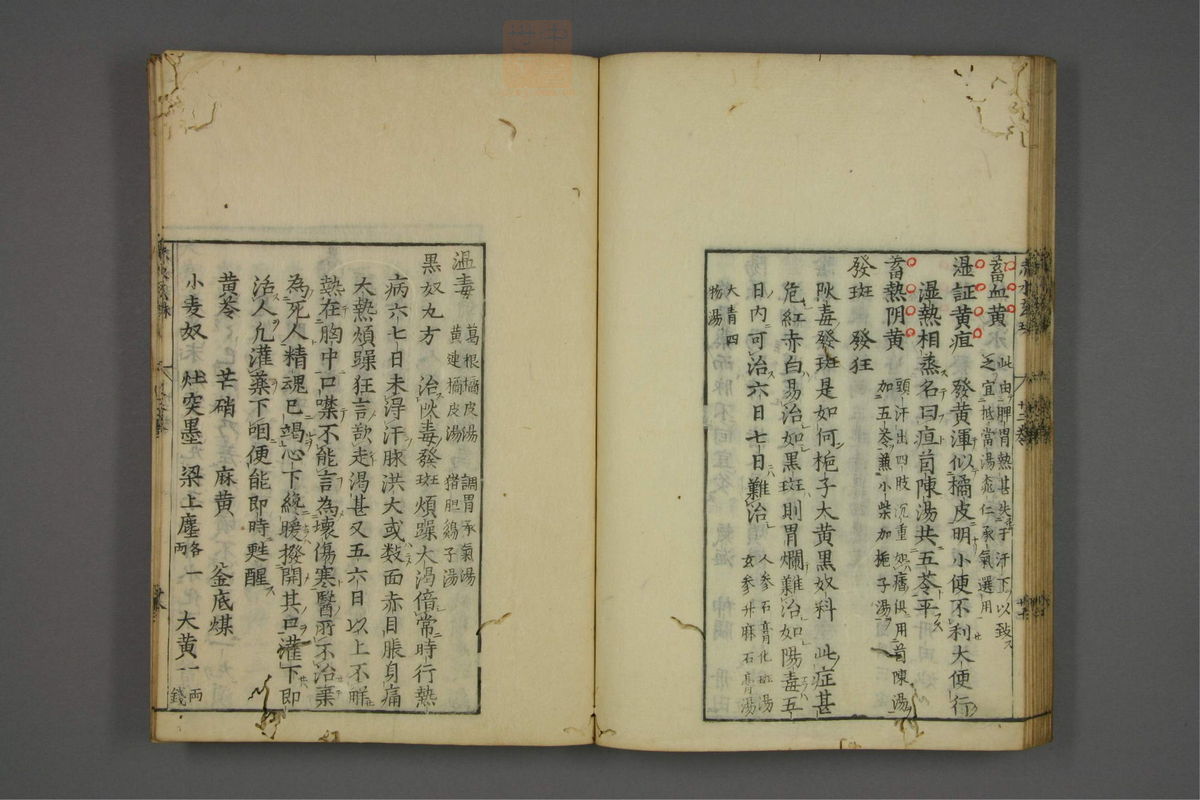 蓄血黄　此由脾胃熱甚失于汗下以致
乏宜抵當湯桃仁承氣選用
湿証黄疸　發黄渾似橘皮明小便不利大便行
湿熱相蒸名曰疸茵陳湯共五苓平
蓄熱阴黄　頭汗出四肢沉重如癮俱用茵陳湯
加五苓兼小柴加梔子湯
發斑　發狂
阦毒發斑是如何梔子大黄黒奴料　此症甚
危紅赤白易治如黒斑則胃爛難治如陽毒五
日内可治六日七日難治　人参石膏化斑湯
玄参升麻石膏湯
大青四
物湯
温毒　葛根橘皮湯　調胃承氣湯
黄連橘皮湯　猪胆鷄子湯
黒奴丸方　治阦毒發斑煩躁大渇倍常時行熱
病六七日未淂汗脉洪大或数面赤目脹身痛
大熱煩躁狂言欲走渇甚又五六日以上不觧
熱在胸中口噤不能言為壊傷寒醫所不治棄
為死人精魂已竭心下纔暖撥開其口灌下即
治人凢灌藥下咽便能即時甦醒
黄芩　芒硝　麻黄　釡底煤
小麦奴　灶突墨　梁上塵各一両　大黄一両一錢